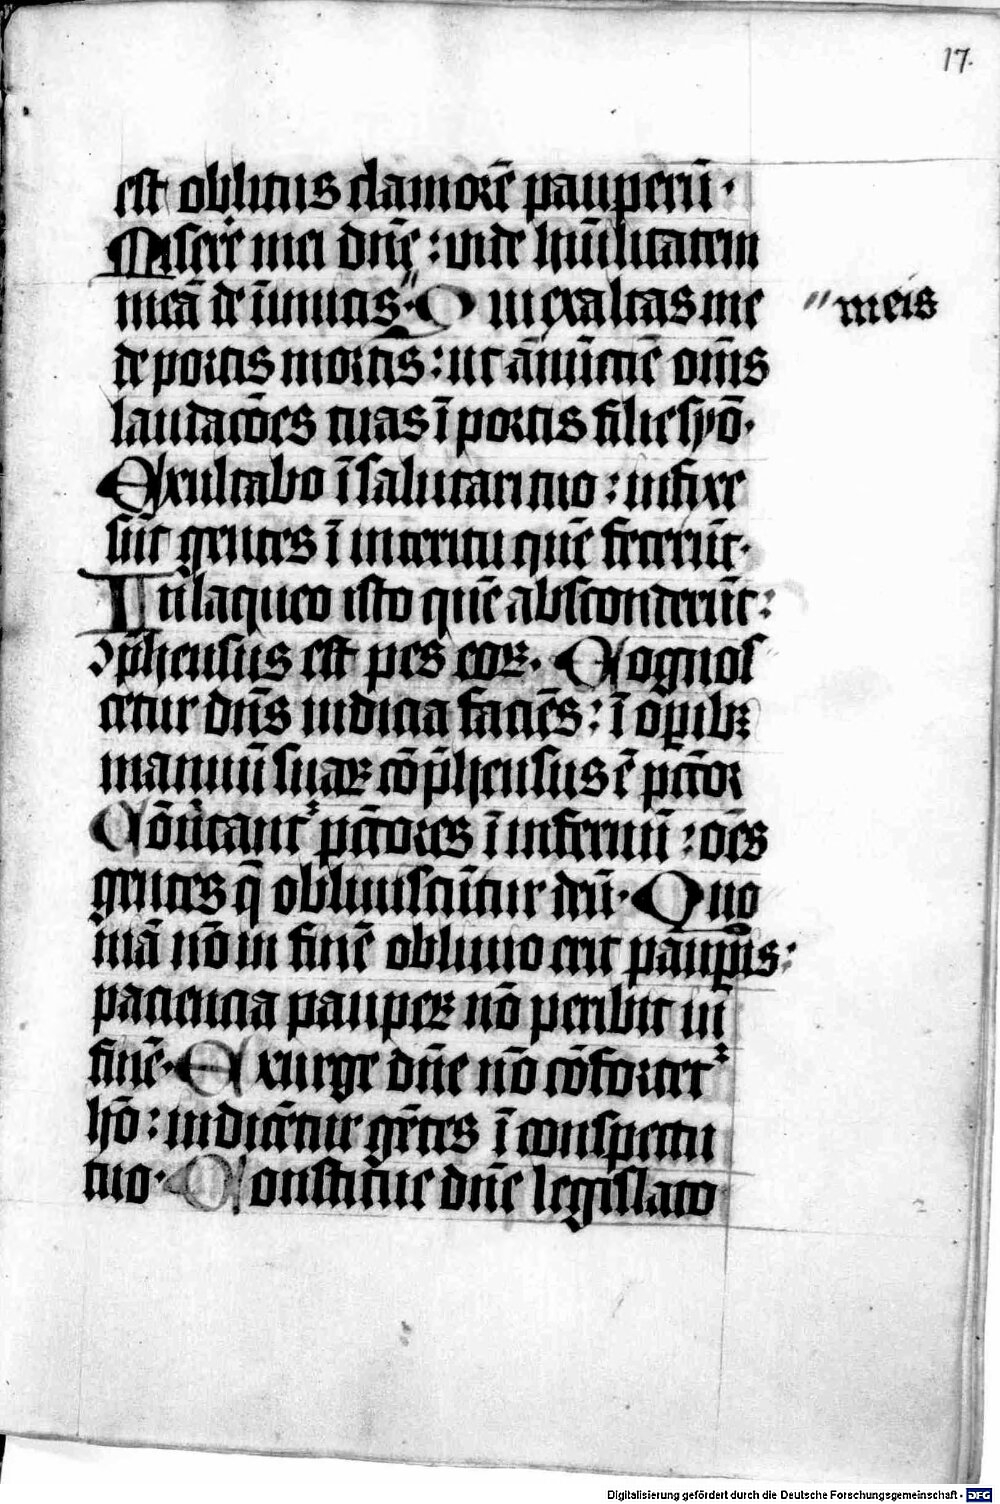 17.
est oblitus clamorē pauperū ·
Miserē mei dn̄e : vide hūilitatem
meā de īimicis · Qui exaltas me
" meis
de portis mortis : ut ānūciē om̄s
laudatōes tuas ī portis filie syō ·
Exultabo ī salutari tuo : infixe
sūt gentes ī interitu quē fecerūt ·
In laqueo isto quē absconderūt :
ꝯp̄hensus est pes eoꝝ · Cognos
cetur dn̄s iudicia faciēs : ī oꝑibꝫ
manuū suaꝝ cōp̄hensus ē pctōr
Cōv̄tantᷣ pctōres ī infernū : oēs
gentes q̄ obliviscūtur deū · Quo
niā nō in finē oblivio erit pauꝑis :
paciencia pauperꝝ nō peribit in
finē · Exurge dn̄e nō cōfortetᷣ
hō : iudicētur gētes ī conspectu
tuo · Constitue dn̄e legislato
Digitalisierung gefördert durch die Deutsche Forschungsgemeinschaft - DFG